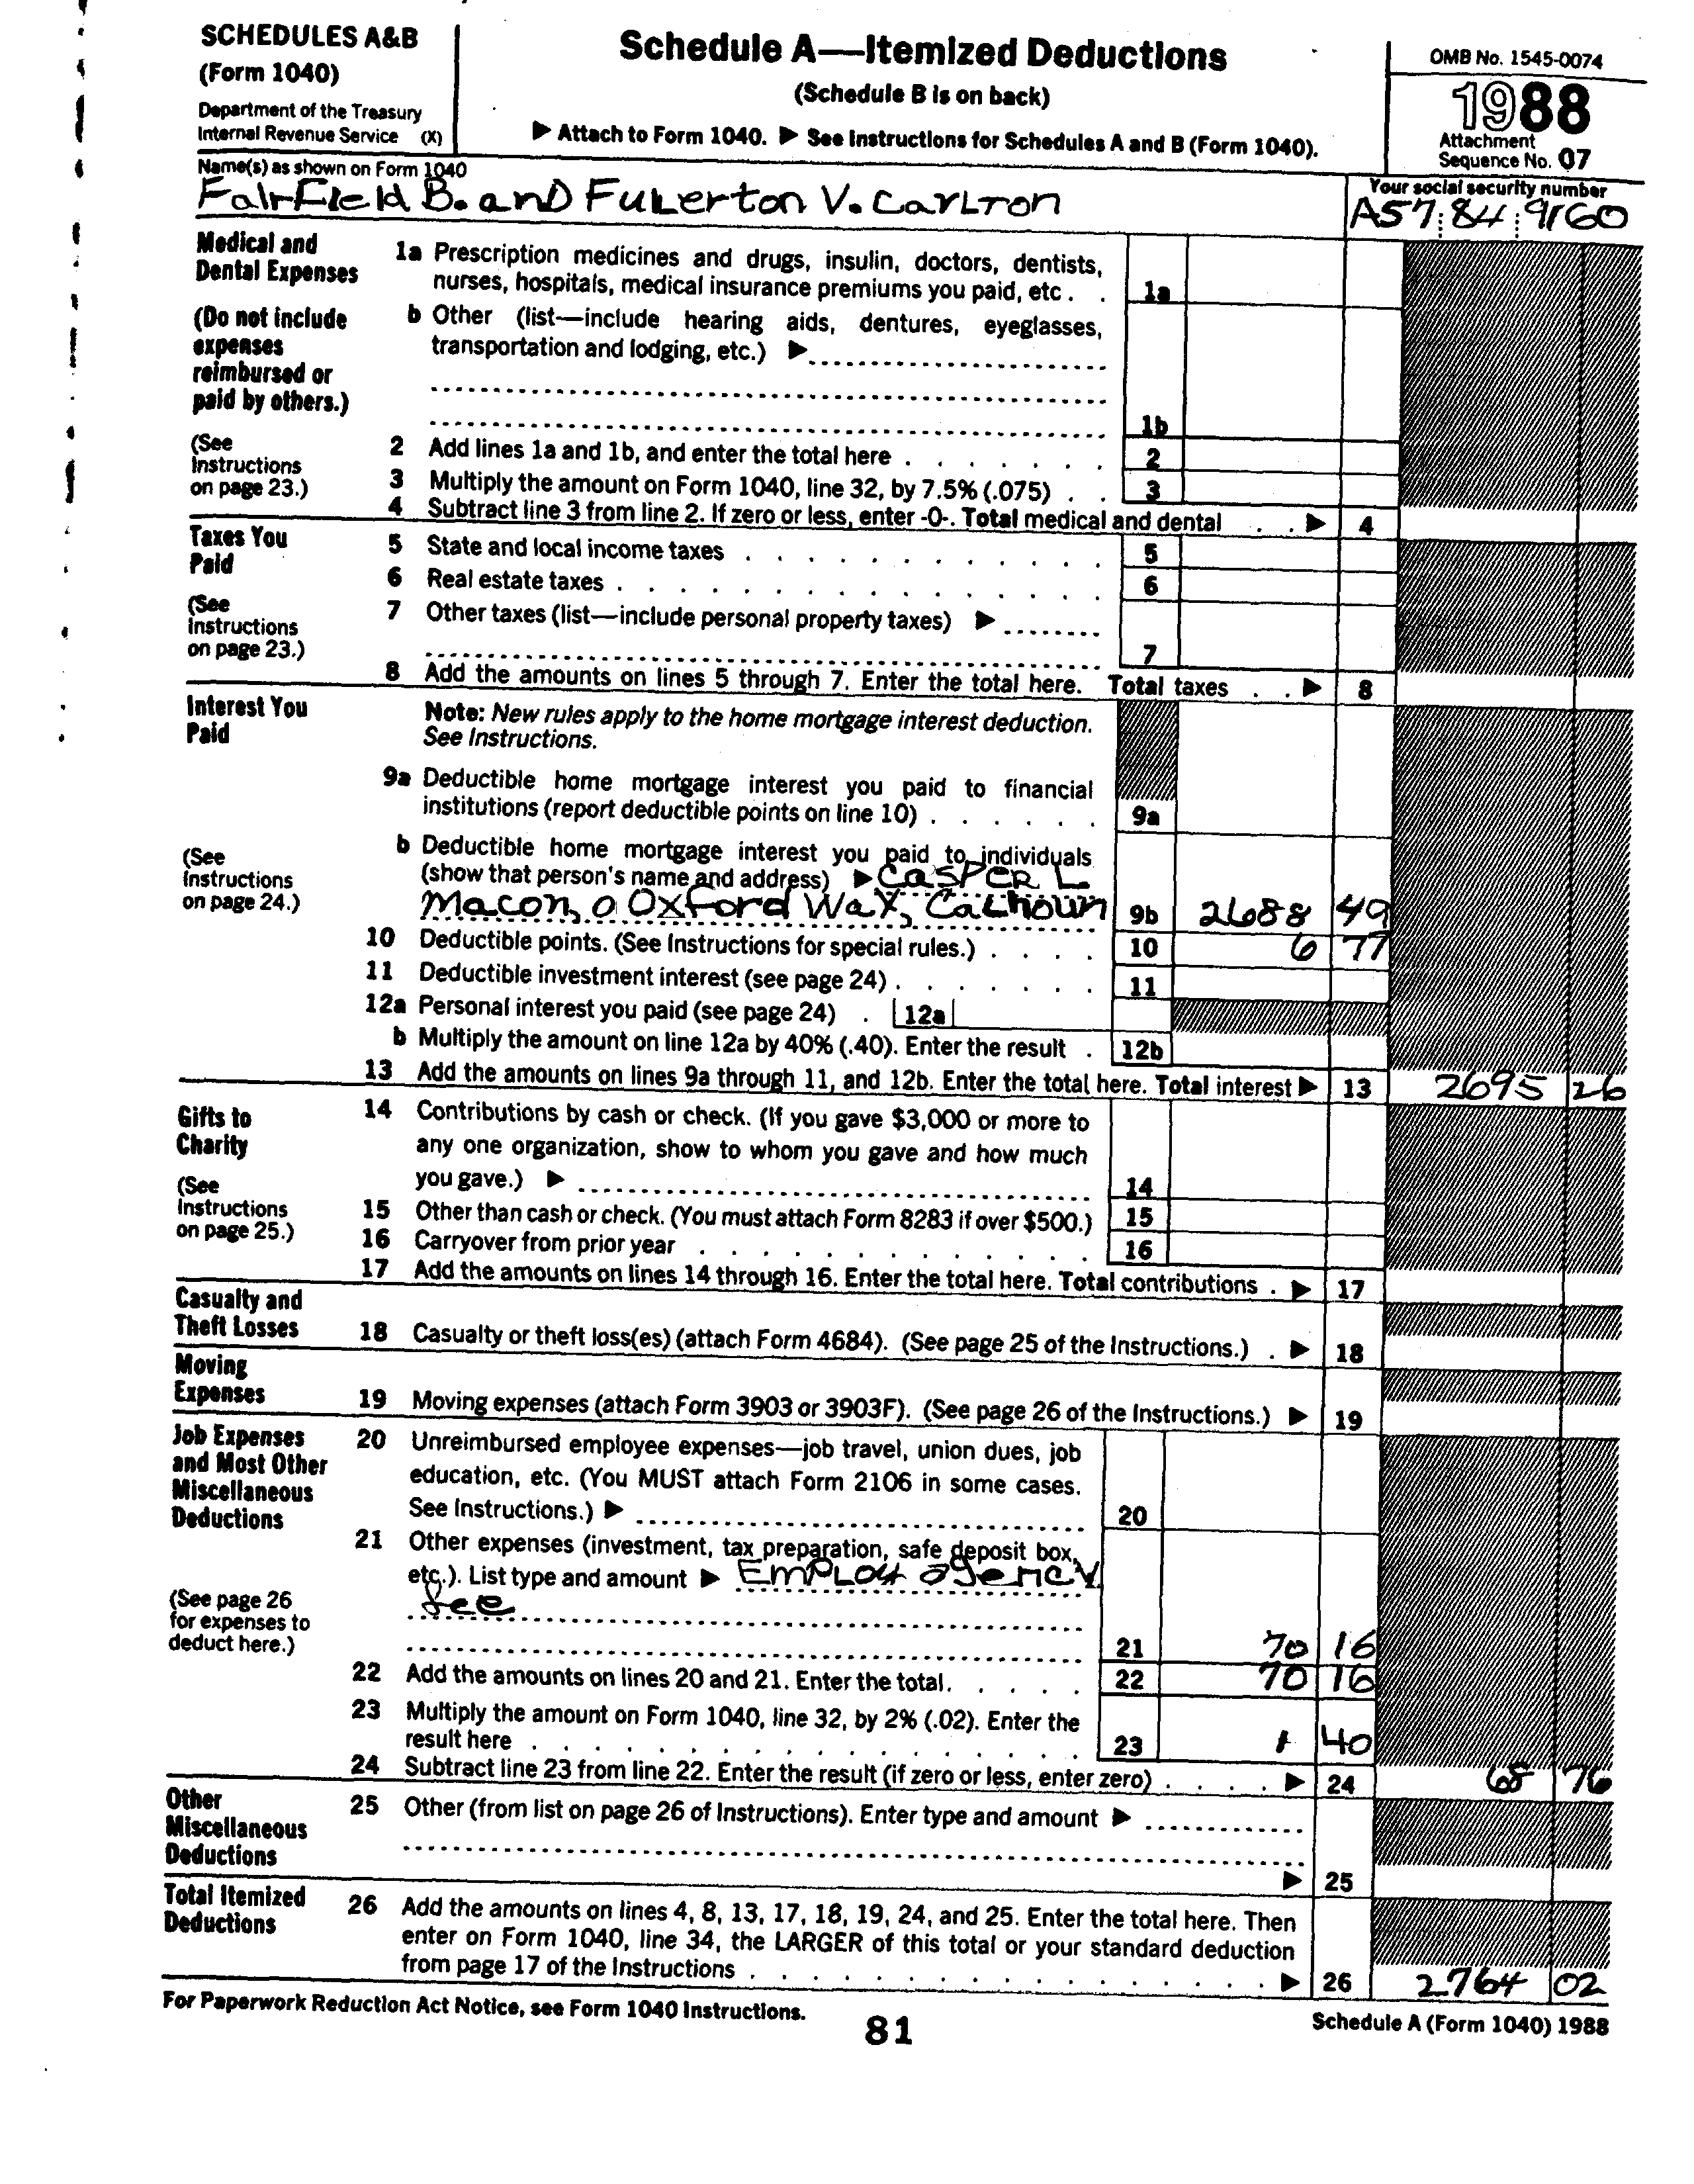 SCHEDULES A&B
(Form 1040)
Department of the Treasury
Internal Revenue Service (X)
Schedule A—Itemized Deductions
(Schedule B is on back)
▶ Attach to Form 1040. ▶ See Instructions for Schedules A and B (Form 1040).
OMB No. 1545-0074
1988
Attachment
Sequence No. 07
Name(s) as shown on Form 1040
Fairfield B. and Fullerton V. Carlton
Your social security number
A57 84 9160
Medical and
Dental Expenses
(Do not include
expenses
reimbursed or
paid by others.)
(See
Instructions
on page 23.)
1a Prescription medicines and drugs, insulin, doctors, dentists,
nurses, hospitals, medical insurance premiums you paid, etc . . 1a
b Other (list—include hearing aids, dentures, eyeglasses,
transportation and lodging, etc.) ▶
1b
2 Add lines 1a and 1b, and enter the total here . . . . . . . 2
3 Multiply the amount on Form 1040, line 32, by 7.5% (.075) . . 3
4 Subtract line 3 from line 2. If zero or less, enter -0-. Total medical and dental . . ▶ 4
Taxes You
Paid
(See
Instructions
on page 23.)
5 State and local income taxes . . . . . . . . . . . 5
6 Real estate taxes . . . . . . . . . . . . . . . 6
7 Other taxes (list—include personal property taxes) ▶
7
8 Add the amounts on lines 5 through 7. Enter the total here. Total taxes . . ▶ 8
Interest You
Paid
(See
Instructions
on page 24.)
Note: New rules apply to the home mortgage interest deduction.
See Instructions.
9a Deductible home mortgage interest you paid to financial
institutions (report deductible points on line 10) . . . . . . 9a
b Deductible home mortgage interest you paid to individuals
(show that person's name and address) ▶ Casper L.
Macon, 0 Oxford Way, Calhoun 9b 2688 49
10 Deductible points. (See Instructions for special rules.) . . . . 10 6 77
11 Deductible investment interest (see page 24) . . . . . . . 11
12a Personal interest you paid (see page 24) . 12a
b Multiply the amount on line 12a by 40% (.40). Enter the result . 12b
13 Add the amounts on lines 9a through 11, and 12b. Enter the total here. Total interest ▶ 13 2695 26
Gifts to
Charity
(See
Instructions
on page 25.)
14 Contributions by cash or check. (If you gave $3,000 or more to
any one organization, show to whom you gave and how much
you gave.) ▶ 14
15 Other than cash or check. (You must attach Form 8283 if over $500.) 15
16 Carryover from prior year . . . . . . . . . . . . . 16
17 Add the amounts on lines 14 through 16. Enter the total here. Total contributions . ▶ 17
Casualty and
Theft Losses
18 Casualty or theft loss(es) (attach Form 4684). (See page 25 of the Instructions.) . ▶ 18
Moving
Expenses
19 Moving expenses (attach Form 3903 or 3903F). (See page 26 of the Instructions.) ▶ 19
Job Expenses
and Most Other
Miscellaneous
Deductions
(See page 26
for expenses to
deduct here.)
20 Unreimbursed employee expenses—job travel, union dues, job
education, etc. (You MUST attach Form 2106 in some cases.
See Instructions.) ▶ 20
21 Other expenses (investment, tax preparation, safe deposit box,
etc.). List type and amount ▶ Employ agency
fee
21 70 16
22 Add the amounts on lines 20 and 21. Enter the total. . . . . 22 70 16
23 Multiply the amount on Form 1040, line 32, by 2% (.02). Enter the
result here . . . . . . . . . . . . . . . . . . 23 1 40
24 Subtract line 23 from line 22. Enter the result (if zero or less, enter zero) . . . . ▶ 24 68 76
Other
Miscellaneous
Deductions
25 Other (from list on page 26 of Instructions). Enter type and amount ▶
▶ 25
Total Itemized
Deductions
26 Add the amounts on lines 4, 8, 13, 17, 18, 19, 24, and 25. Enter the total here. Then
enter on Form 1040, line 34, the LARGER of this total or your standard deduction
from page 17 of the Instructions . . . . . . . . . . . . . . . . . ▶ 26 2764 02
For Paperwork Reduction Act Notice, see Form 1040 Instructions.
81
Schedule A (Form 1040) 1988